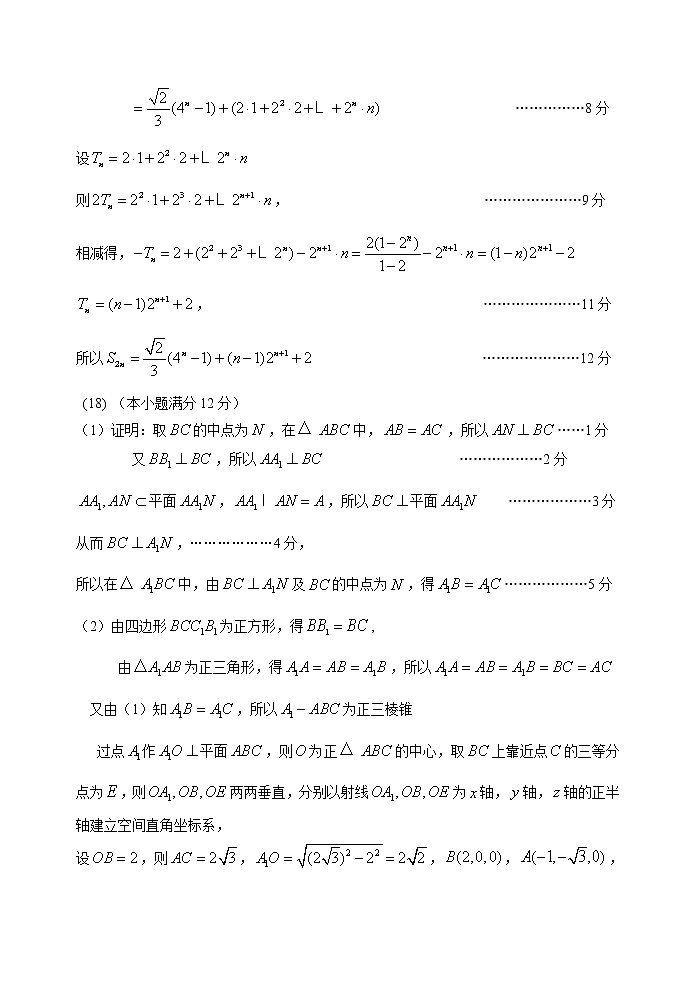 $= \frac{\sqrt{2}}{3}(4^n - 1) + (2 \cdot 1 + 2^2 \cdot 2 + L + 2^n \cdot n)$ ……………8分
设$T_n = 2 \cdot 1 + 2^2 \cdot 2 + L\ 2^n \cdot n$
则$2T_n = 2^2 \cdot 1 + 2^3 \cdot 2 + L\ 2^{n+1} \cdot n$， …………………9分
相减得，$-T_n = 2 + (2^2 + 2^3 + L\ 2^n) - 2^{n+1} \cdot n = \frac{2(1-2^n)}{1-2} - 2^{n+1} \cdot n = (1-n)2^{n+1} - 2$
$T_n = (n-1)2^{n+1} + 2$， …………………11分
所以$S_{2n} = \frac{\sqrt{2}}{3}(4^n - 1) + (n-1)2^{n+1} + 2$ …………………12分
(18) （本小题满分12分）
（1）证明：取$BC$的中点为$N$，在△ $ABC$中，$AB = AC$，所以$AN \perp BC$……1分
又$BB_1 \perp BC$，所以$AA_1 \perp BC$ ………………2分
$AA_1, AN \subset$平面$AA_1N$，$AA_1 I\ AN = A$，所以$BC \perp$平面$AA_1N$ ………………3分
从而$BC \perp A_1N$，………………4分，
所以在△ $A_1BC$中，由$BC \perp A_1N$及$BC$的中点为$N$，得$A_1B = A_1C$………………5分
（2）由四边形$BCC_1B_1$为正方形，得$BB_1 = BC$，
由△$A_1AB$为正三角形，得$A_1A = AB = A_1B$，所以$A_1A = AB = A_1B = BC = AC$
又由（1）知$A_1B = A_1C$，所以$A_1 - ABC$为正三棱锥
过点$A_1$作$A_1O \perp$平面$ABC$，则$O$为正△ $ABC$的中心，取$BC$上靠近点$C$的三等分
点为$E$，则$OA_1, OB, OE$两两垂直，分别以射线$OA_1, OB, OE$为$x$轴，$y$轴，$z$轴的正半
轴建立空间直角坐标系，
设$OB = 2$，则$AC = 2\sqrt{3}$，$A_1O = \sqrt{(2\sqrt{3})^2 - 2^2} = 2\sqrt{2}$，$B(2,0,0)$，$A(-1,-\sqrt{3},0)$，